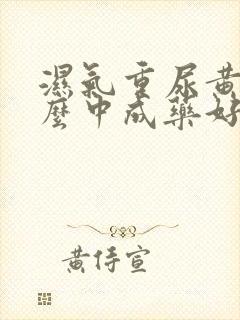 濕氣重尿黃
麼中成藥好
黃侍宣